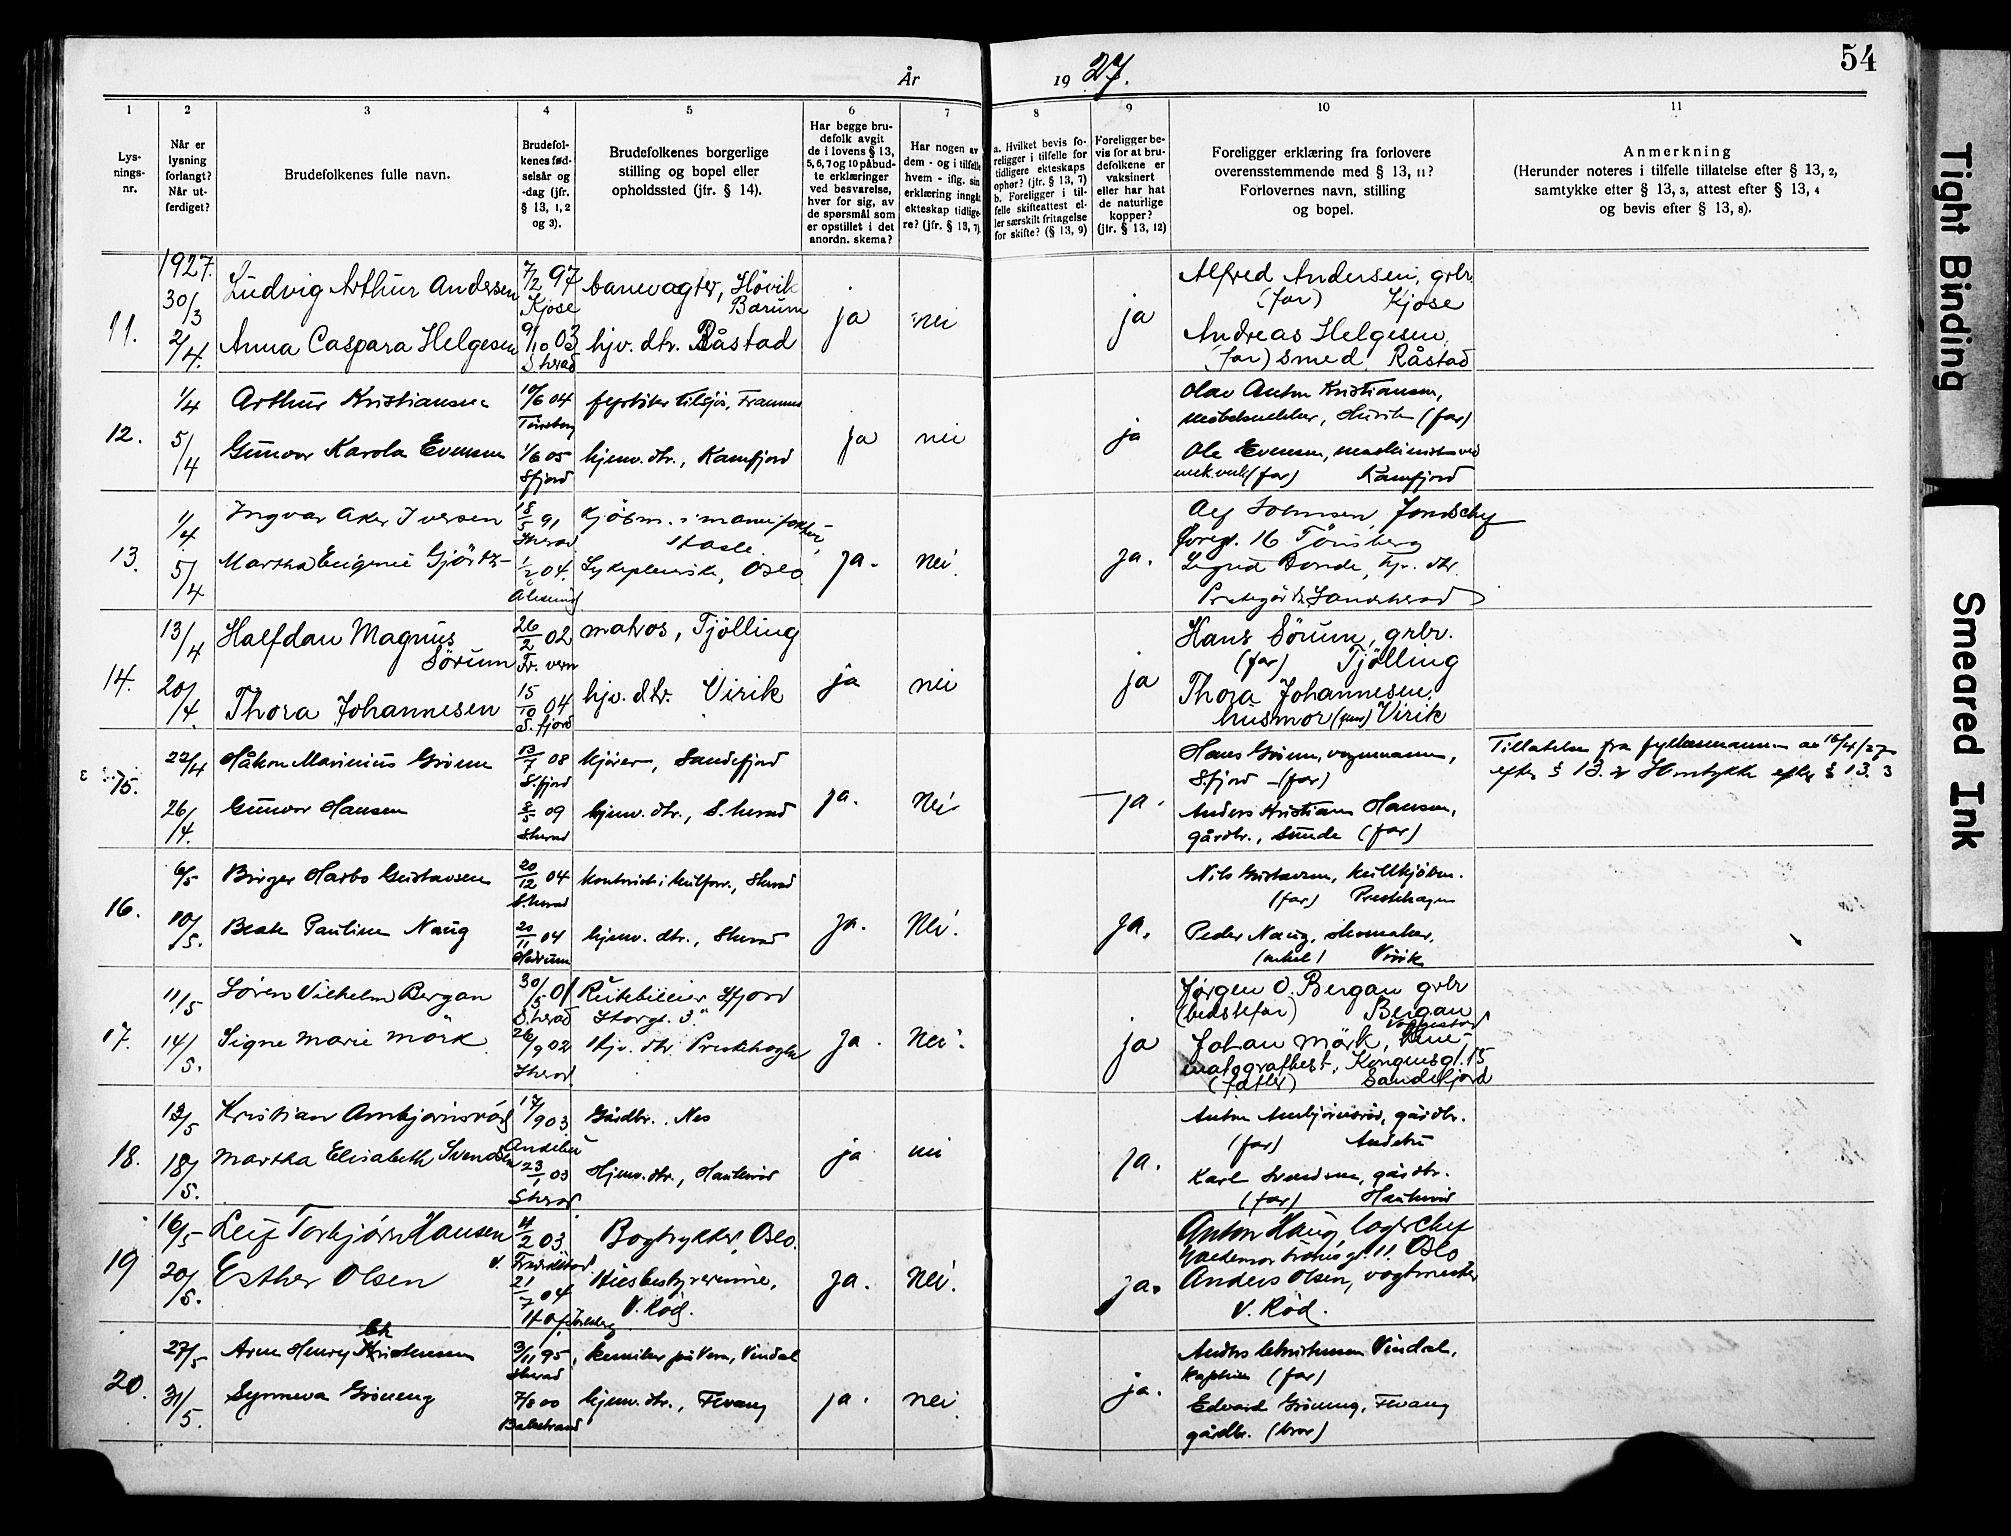 54
År 1927.
1 2 3 4 5 6 7 8 9 10 11
Lysningsnr.
Når er lysning forlangt? Når utferdiget?
Brudefolkenes fulle navn.
Brudefolkenes fødselsår og -dag (jfr. § 13, 1, 2 og 3).
Brudefolkenes borgerlige stilling og bopel eller opholdssted (jfr. § 14).
Har begge brudefolk avgit de i lovens § 13, 5, 6, 7 og 10 påbudte erklæringer ved besvarelse, hver for sig, av de spørsmål som er opstillet i det anordn. skema?
Har nogen av dem - og i tilfelle hvem - iflg. sin erklæring inngåt ekteskap tidligere? (jfr. § 13, 7).
a. Hvilket bevis foreligger i tilfelle for tidligere ekteskaps ophør? (jfr. § 13, 7)
b. Foreligger i tilfelle skifteattest eller særskilt fritagelse for skifte? (§ 13, 9)
Foreligger bevis for at brudefolkene er vaksinert eller har hat de naturlige kopper? (jfr. § 13, 12)
Foreligger erklæring fra forlovere overensstemmende med § 13, 11? Forlovernes navn, stilling og bopel.
Anmerkning
(Herunder noteres i tilfelle tillatelse efter § 13, 2, samtykke efter § 13, 3, attest efter § 13, 4 og bevis efter § 13, 8).
1927.
11. 30/3 Ludvig Arthur Andersen 7/2 97 Kjose banevogter, Høvik Bærum ja nei ja Alfred Andersen, grbr. (far) Kjose
2/4. Anna Caspara Helgesen 9/10 03 S.herad hjv. dtr. Råstad Andreas Helgesen, (far) smed Råstad
12. 1/4 Arthur Kristiansen 10/6 04 Tønsberg fyrbøter tilsjøs, Framnes ja nei ja Olav Anton Kristiansen, (far)
5/4 Gunvor Karola Evensen 1/6 05 Sfjord hjemv. dtr., Kamfjord Ole Evensen, maskinist ved mek. verk (far) Kamfjord
13. 1/4. Ingvar Aker Iversen 18/5 91 Sherad kjøbm. i manufaktur, ja. nei. ja. 16 Tönsberg
5/4 Martha Eugenie Gjörtz 04. Ålesund Sykepleierske, Oslo Sandeherad
14. 13/4 Halfdan Magnus Sørum 26/2 02 Fr. vern matros, Tjölling ja nei ja Hans Sørum, grbr. (far) Tjölling
20/4. Thora Johannesen 15/10 04 S. fjord hjv. dtr. Virik Thora Johannesen, husmor (mor) Virik
15. 22/4 Håkon Marinius Grønn 13/7 08 S.fjord kjører, Sandefjord ja. nei ja. Hans Grønn, vognmann, Sfjord (far) Tillatelse fra fylkesmannen av 16/4/27 efter § 13. 2 Samtykke efter § 13. 3
26/4. Gunvor Hansen 09 Sherad hjemv. dtr., S.herad Anders Kristian Hansen, gårdbr., Sunde (far)
16. 6/5 Birger Harbo Gustavsen 20/12 04 S.herad Sherad ja. nei. ja. Nils Gustavsen, kullkjøbm. (far) Prestehagen
10/5. Beate Pauline Naug 20/11 04 Hedrum hjemv. dtr., Sherad Peder Naug, skomaker, (onkel) Virik
17. 11/5 Søren Vilhelm Bergan 30/5 01 S.herad Rutebileier Sfjord Storgt. 3. ja. nei. ja Jørgen O. Bergan grbr (bedstefar) Bergan
14/5. Signe Marie Mørk 26/9 02 Sherad. Hjv. dtr Prestehagen Johan Mørk, kinematografbest., Kongensgt. 15 (fatter) Sandefjord
18. 12/5 Kristian Anbjørnsrød 17/9 03 Andebu Gårdbr., Nes ja nei ja. Anton Anbjørnsrød, gårdbr. (far) Andebu
18/5. Martha Elisabeth Svendsen 23/1 03 Sherad. Hjemv. dtr., Haukerød Karl Svendsen, gårdbr. (far) Haukerød
19 16/5 Leif Torbjørn Hansen 4/2 03 v. Fredrikstad Bogtrykker, Oslo. ja. nei. ja. Anton Haug, lagerchef 11. Oslo
20/5. Esther Olsen 21/7 04 Husbestyrerinne, V. Rød. Anders Olsen, vogtmester V. Rød.
20. 27/5 Arne Henry Christensen 3/11 95, Sherad kemiker på Vera, Vindal ja. nei ja. Anders Christensen Vindal, kaptein (far)
31/5. Synneva Grøneng 7/8 00 Balestrand hjemv. dtr., Fevang Edvard Grøneng, Fevang gårdbr. (bror)
Tight Binding
Smeared Ink